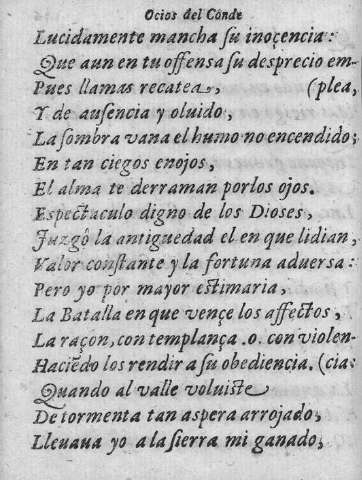 Ocios del Cõnde
Lucidamente mancha ſu inoçencia:
Que aun en tu offensa ſu desprecio em-
Pues llamas recatea, (plea,
Y de auſencia y oluido,
La ſombra vana el humo no encendido;
En tan ciegos enojos,
El alma te derraman porlos ojos.
Eſpectaculo digno de los Dioses,
Juzgô la antiguedad el en que lidian,
Valor conſtante y la fortuna aduersa:
Pero yo por mayor eſtimaria,
La Batalla en que vençe los affectos,
La raçon, con templança .o. con violen-
Haciẽdo los rendir a ſu obediencia. (cia:
Quando al valle voluiſte
De tormenta tan aspera arrojado,
Lleuaua yo a la ſierra mi ganado,